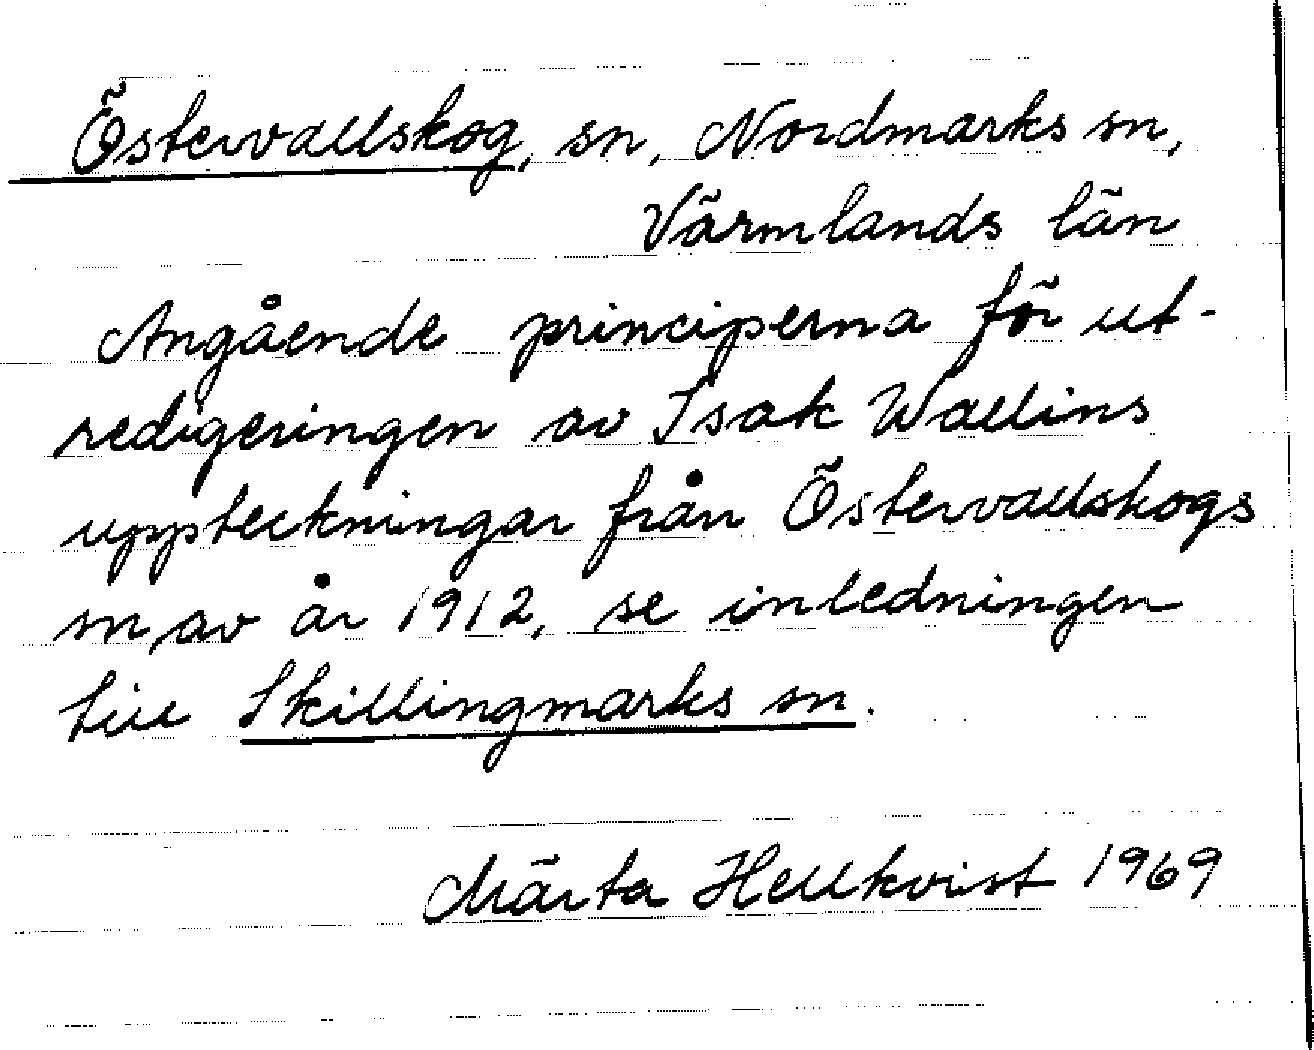 Östervallskog, sn, Nordmarks sn,
Värmlands län
Angående principerna för ut-
redigeringen av Isak Wallins
uppteckningar från Östervallskogs
sn, av år 1912, se inledningen
till Skillingmarks sn.
Märta Hellkvist 1969